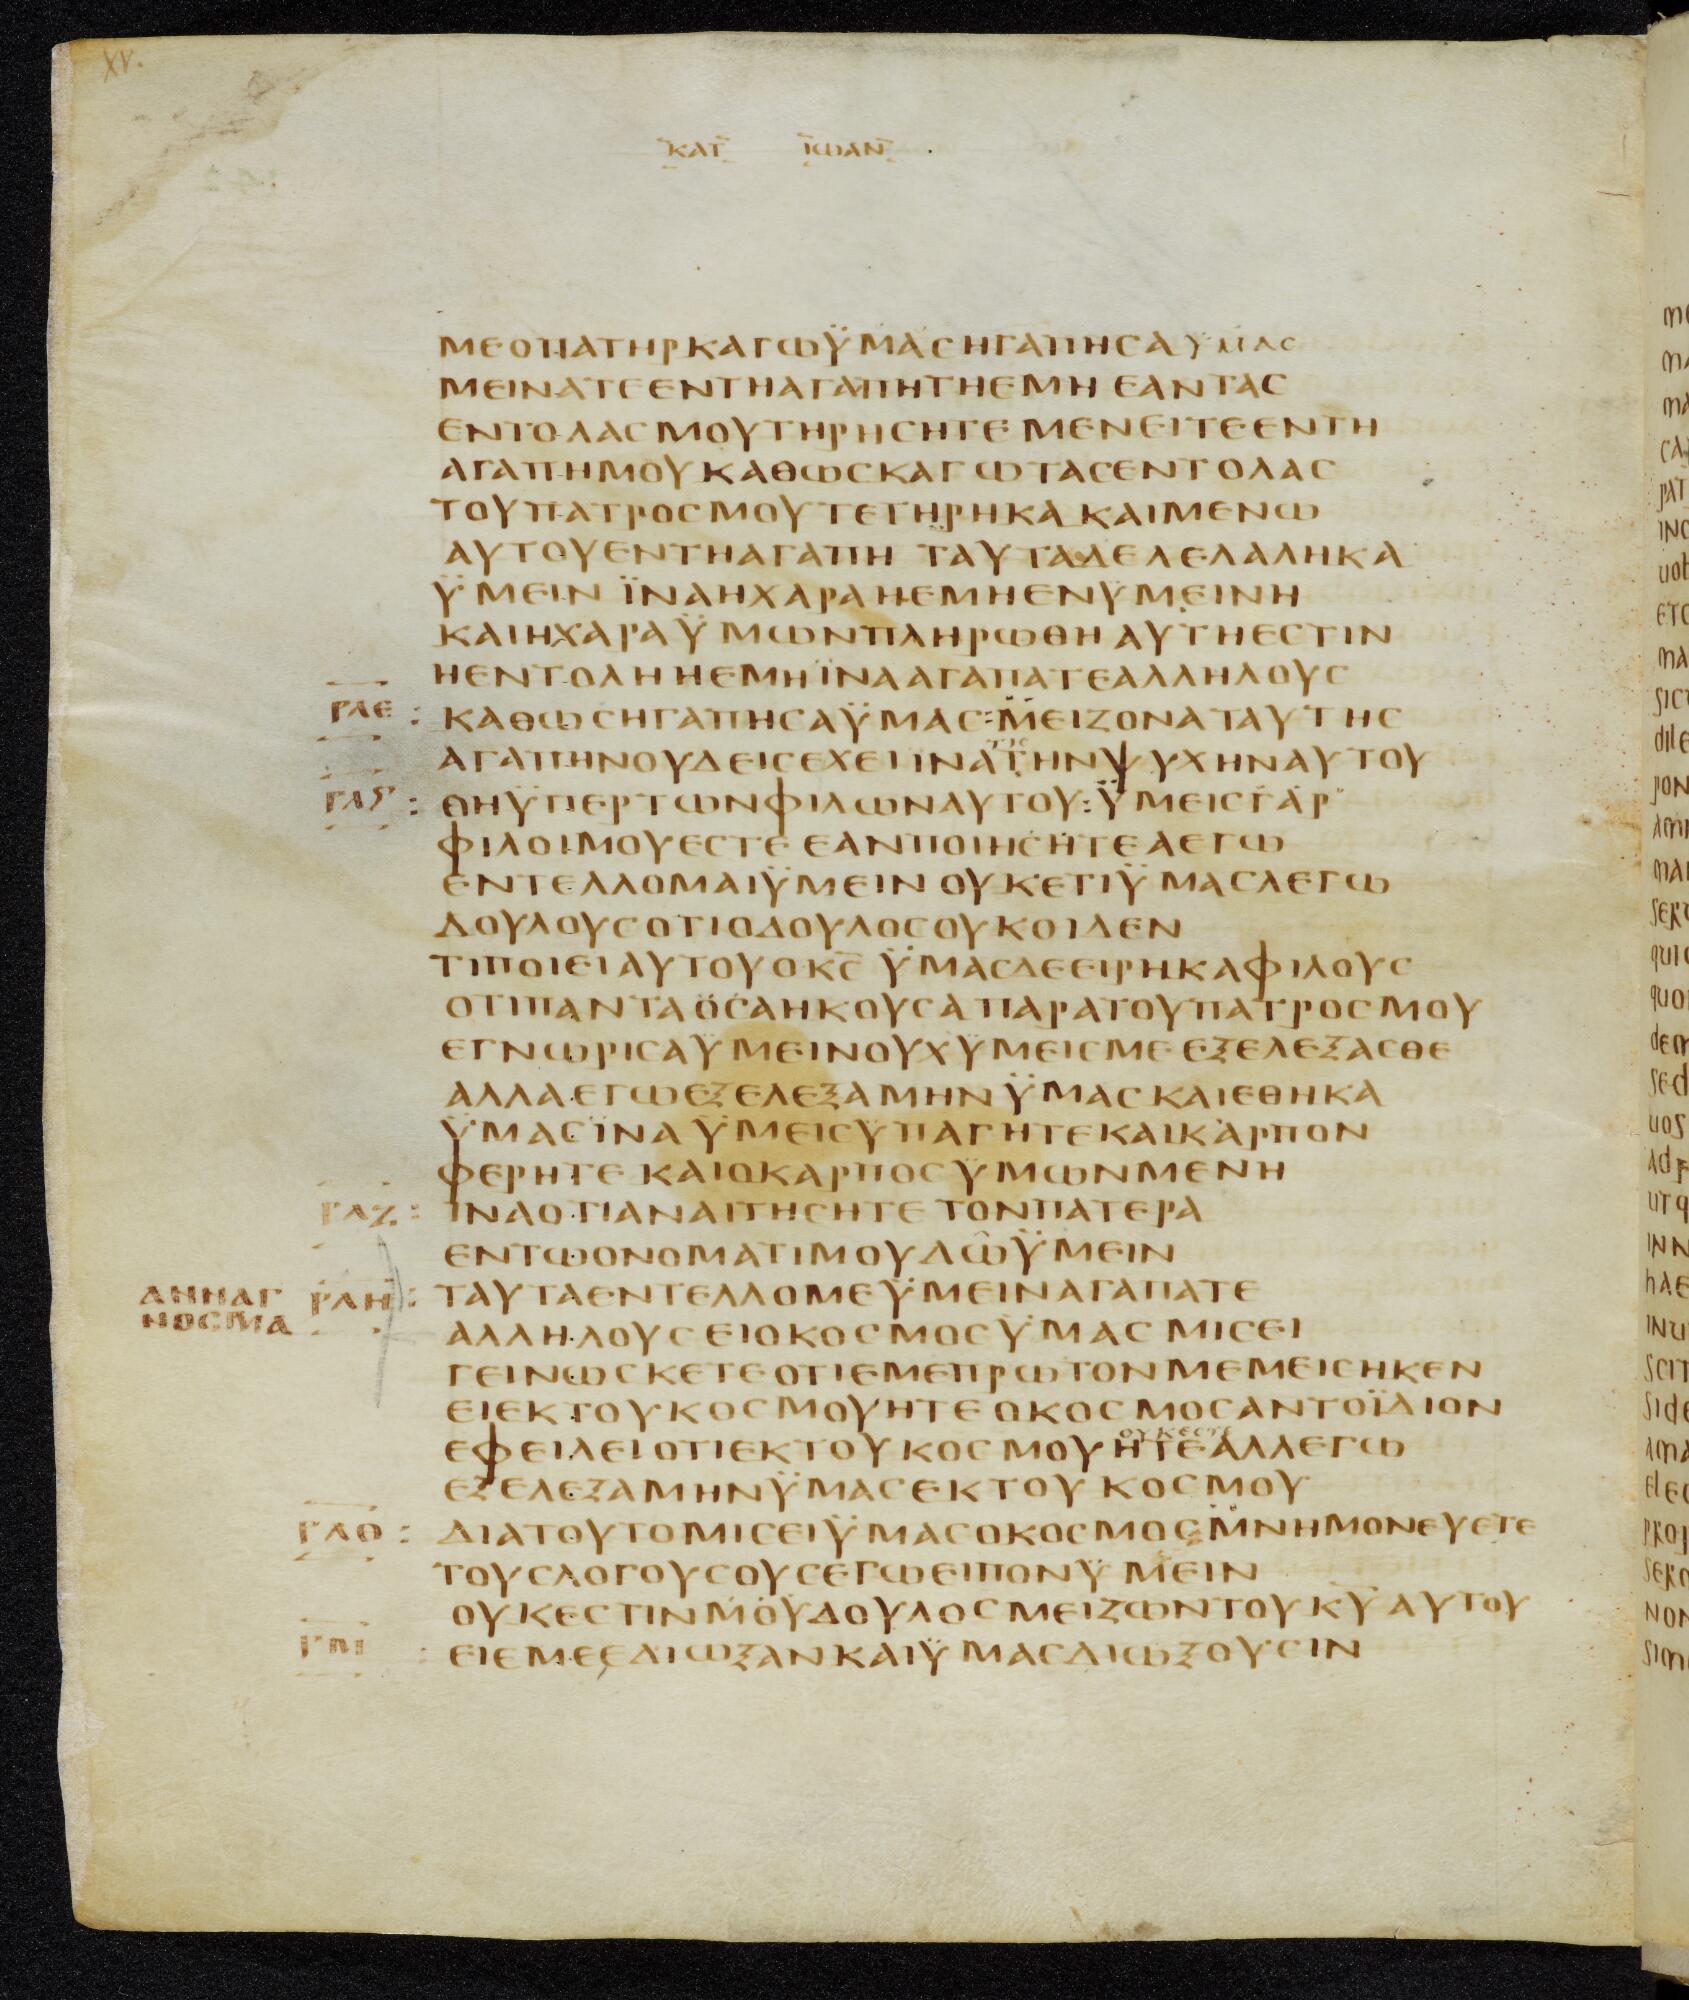 XV.
ΚΑΤ ΙΩΑΝ
ΜΕΟΠΑΤΗΡΚΑΓΩΫΜΑСΗΓΑΠΗСΑΥΜΑС
ΜΕΙΝΑΤΕΕΝΤΗΑΓΑΠΗΤΗΕΜΗ ΕΑΝΤΑС
ΕΝΤΟΛΑСΜΟΥΤΗΡΗСΗΤΕ ΜΕΝΕΙΤΕΕΝΤΗ
ΑΓΑΠΗΜΟΥΚΑΘΩСΚΑΓΩΤΑСΕΝΤΟΛΑС
ΤΟΥΠΑΤΡΟСΜΟΥΤΕΤΗΡΗΚΑ ΚΑΙΜΕΝΩ
ΑΥΤΟΥΕΝΤΗΑΓΑΠΗ ΤΑΥΤΑΔΕΛΕΛΑΛΗΚΑ
ΫΜΕΙΝ ΪΝΑΗΧΑΡΑΗΕΜΗΕΝΫΜΕΙΝΗ
ΚΑΙΗΧΑΡΑΫΜΩΝΠΛΗΡΩΘΗ ΑΥΤΗΕСΤΙΝ
ΗΕΝΤΟΛΗΗΕΜΗΪΝΑΑΓΑΠΑΤΕΑΛΛΗΛΟΥС
ΡΛΕ : ΚΑΘΩСΗΓΑΠΗСΑΫΜΑС:ΜΕΙΖΟΝΑΤΑΥΤΗС
ΑΓΑΠΗΝΟΥΔΕΙСΕΧΕΙΙΝΑΤΗΝΨΥΧΗΝΑΥΤΟΥ
ΡΛϚ : ΘΗΫΠΕΡΤΩΝΦΙΛΩΝΑΥΤΟΥ:ΫΜΕΙСΓΑΡ
ΦΙΛΟΙΜΟΥΕСΤΕ ΕΑΝΠΟΙΗСΗΤΕΑΕΓΩ
ΕΝΤΕΛΛΟΜΑΙΫΜΕΙΝ ΟΥΚΕΤΙΫΜΑСΛΕΓΩ
ΔΟΥΛΟΥСΟΤΙΟΔΟΥΛΟСΟΥΚΟΙΔΕΝ
ΤΙΠΟΙΕΙΑΥΤΟΥΟΚС ΫΜΑСΔΕΕΙΡΗΚΑΦΙΛΟΥС
ΟΤΙΠΑΝΤΑΟСΑΗΚΟΥСΑΠΑΡΑΤΟΥΠΑΤΡΟСΜΟΥ
ΕΓΝΩΡΙСΑΫΜΕΙΝΟΥΧΫΜΕΙСΜΕΕΞΕΛΕΞΑСΘΕ
ΑΛΛΑΕΓΩΕΞΕΛΕΞΑΜΗΝΫΜΑСΚΑΙΕΘΗΚΑ
ΫΜΑСΪΝΑΫΜΕΙСΥΠΑΓΗΤΕΚΑΙΚΑΡΠΟΝ
ΦΕΡΗΤΕ ΚΑΙΟΚΑΡΠΟСΫΜΩΝΜΕΝΗ
ΡΛΖ : ΪΝΑΟΤΙΑΝΑΙΤΗСΗΤΕ ΤΟΝΠΑΤΕΡΑ
ΕΝΤΩΟΝΟΜΑΤΙΜΟΥΔΩΫΜΕΙΝ
ΑΝΝΑΓ ΡΛΗ : ΤΑΥΤΑΕΝΤΕΛΛΟΜΕΫΜΕΙΝΑΓΑΠΑΤΕ
ΝΟСΜΑ ΑΛΛΗΛΟΥСΕΙΟΚΟСΜΟСΫΜΑС ΜΙСΕΙ
ΓΕΙΝΩСΚΕΤΕΟΤΙΕΜΕΠΡΩΤΟΝΜΕΜΕΙСΗΚΕΝ
ΕΙΕΚΤΟΥΚΟСΜΟΥΗΤΕΟΚΟСΜΟСΑΝΤΟΪΔΙΟΝ
ΟΥΚΕСΤΕ
ΕΦΕΙΛΕΙΟΤΙΕΚΤΟΥΚΟСΜΟΥΗΤΕΑΛΛΕΓΩ
ΕΞΕΛΕΞΑΜΗΝΫΜΑСΕΚΤΟΥΚΟСΜΟΥ
ΡΛΘ : ΔΙΑΤΟΥΤΟΜΙСΕΙΫΜΑСΟΚΟСΜΟС:ΜΝΗΜΟΝΕΥΕΤΕ
ΤΟΥСΛΟΓΟΥСΟΥСΕΓΩΕΙΠΟΝΫΜΕΙΝ
ΟΥΚΕСΤΙΝΜΟΥΔΟΥΛΟСΜΕΙΖΩΝΤΟΥΚΥΑΥΤΟΥ
ΡΜ : ΕΙΕΜΕΕΔΙΩΞΑΝΚΑΙΫΜΑСΔΙΩΞΟΥСΙΝ